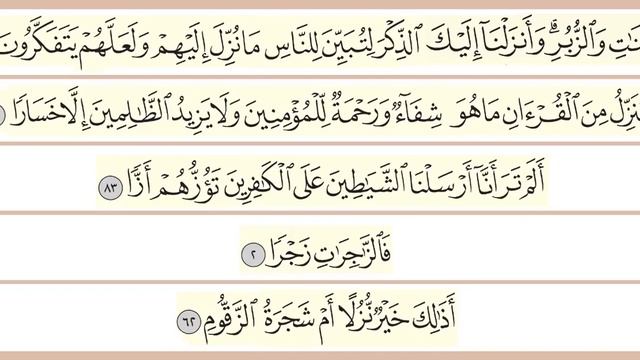 نَٰتِ وَٱلزُّبُرِ ۗ وَأَنزَلْنَآ إِلَيْكَ ٱلذِّكْرَ لِتُبَيِّنَ لِلنَّاسِ مَا نُزِّلَ إِلَيْهِمْ وَلَعَلَّهُمْ يَتَفَكَّرُونَ
نَزِّلُ مِنَ ٱلْقُرْءَانِ مَا هُوَ شِفَآءٌ وَرَحْمَةٌ لِّلْمُؤْمِنِينَ وَلَا يَزِيدُ ٱلظَّٰلِمِينَ إِلَّا خَسَارًا
أَلَمْ تَرَ أَنَّآ أَرْسَلْنَا ٱلشَّيَٰطِينَ عَلَى ٱلْكَٰفِرِينَ تَؤُزُّهُمْ أَزًّا ٨٣
فَٱلزَّٰجِرَٰتِ زَجْرًا ٢
أَذَٰلِكَ خَيْرٌ نُّزُلًا أَمْ شَجَرَةُ ٱلزَّقُّومِ ٦٢